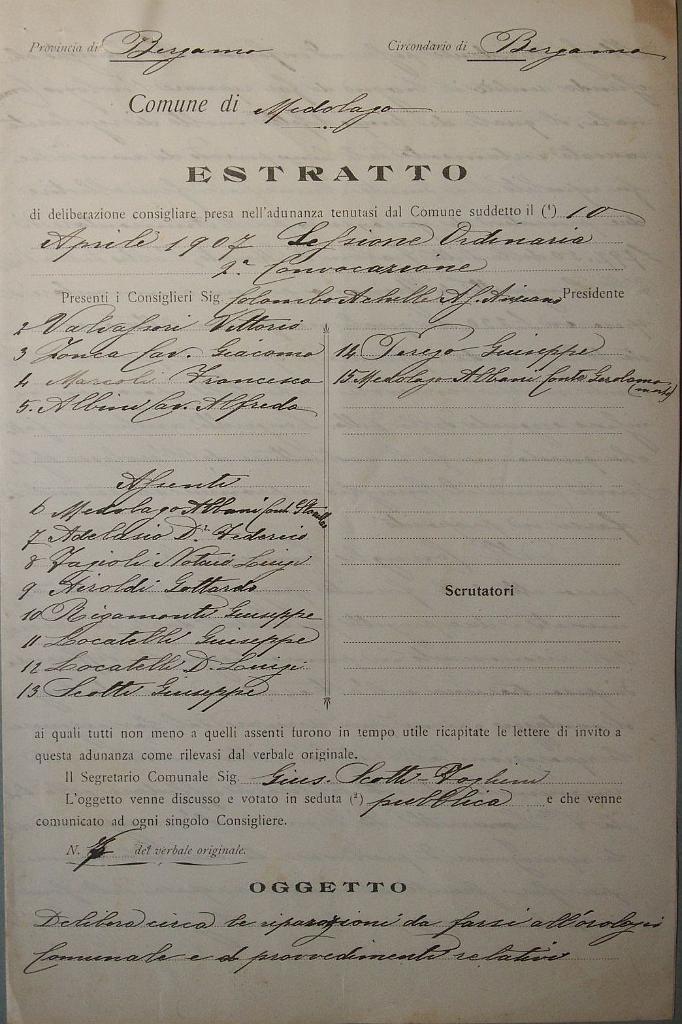 Provincia di Bergamo Circondario di Bergamo
Comune di Medolago
ESTRATTO
di deliberazione consigliare presa nell'adunanza tenutasi dal Comune suddetto il (¹) 10
Aprile 1907 Sessione Ordinaria
2ª Convocazione
Presenti i Consiglieri Sig. Colombo Achille Af. Anziano Presidente
2 Valsassori Vittorio
3 Zonca Cav. Giacomo
4 Marcoli Francesco
5. Albini Cav. Alfredo
Assenti
6 Medolago Albani Cont.
7 Adelasio Dr. Federico
8 Fagioli Notaio Luigi
9 Airoldi Gottardo
10 Rigamonti Giuseppe
11 Locatelli Giuseppe
12 Locatelli D. Luigi
13 Scotti Giuseppe
14 Giuseppe
15 Medolago Albani Conte Gerolamo
(morto)
Scrutatori
ai quali tutti non meno a quelli assenti furono in tempo utile ricapitate le lettere di invito a
questa adunanza come rilevasi dal verbale originale.
Il Segretario Comunale Sig. Gius. Scotti-Foglieni
L'oggetto venne discusso e votato in seduta (²) pubblica e che venne
comunicato ad ogni singolo Consigliere.
N. del verbale originale.
OGGETTO
Delibera circa le riparazioni da farsi all'orologio
Comunale e di provvedimenti relativi